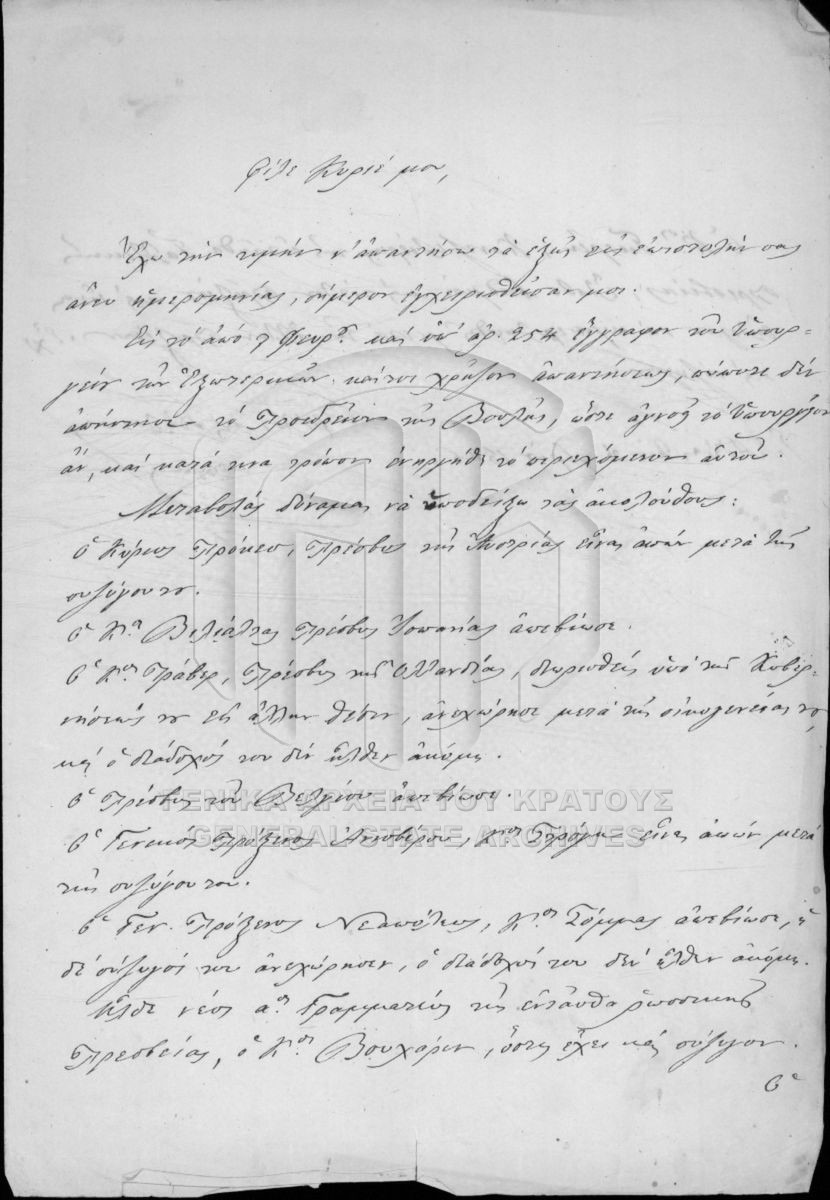 Φίλε Κύριέ μου,
Ἔχω τὴν τιμὴν ν' ἀπαντήσω τὰ ἑξῆς εἰς ἐπιστολήν σας
ἄνευ ἡμερομηνίας, σήμερον ἐγχειρισθεῖσάν μοι.
Εἰς τὸ ἀπὸ 7 Φευρ. καὶ ὑπ' ἀρ. 254 ἔγγραφον τοῦ Ὑπουρ-
γείου τῶν Ἐξωτερικῶν καίτοι χρῆζον ἀπαντήσεως, οὐδέποτε δὲν
ἀπήντησε τὸ Προεδρεῖον τῆς Βουλῆς, ὥστε ἀγνοεῖ τὸ Ὑπουργεῖον
ἂν, καὶ κατὰ τίνα τρόπον ἐνηργήθη τὸ περιεχόμενον αὐτοῦ.
Μεταβολὰς δύναμαι νὰ ὑποδείξω τὰς ἀκολούθους:
ὁ Κύριος Πρόκες, Πρέσβυς τῆς Αὐστρίας εἶναι ἀπὼν μετὰ τῆς
συζύγου του.
ὁ Κος Βιλιάλτας Πρέσβυς Ἱσπανίας ἀπεβίωσε.
ὁ Κος Τράβερ, Πρέσβυς τῆς Ὁλλανδίας, διορισθεὶς ὑπὸ τῆς Κυβερ-
νήσεώς του εἰς ἄλλην θέσιν, ἀνεχώρησε μετὰ τῆς οἰκογενείας του
καὶ ὁ διάδοχός του δὲν ἦλθεν ἀκόμη.
ὁ Πρέσβυς τοῦ Βελγίου ἀπεβίωσε.
ὁ Γενικὸς Πρόξενος Ἀννοβέρου, Κος εἶναι ἀπὼν μετὰ
τῆς συζύγου του.
ὁ Γεν. Πρόξενος Νεαπόλεως, Κος Τόμμας ἀπεβίωσε, ἡ
δὲ σύζυγός του ἀνεχώρησεν, ὁ διάδοχός του δὲν ἦλθεν ἀκόμη.
Ἦλθε νέος αος Γραμματεὺς τῆς ἐνταῦθα ῥωσσικῆς
Πρεσβείας, ὁ Κος Βουχάριν, ὅστις ἔχει καὶ σύζυγον.
Ὁ
ΓΕΝΙΚΑ ΑΡΧΕΙΑ ΤΟΥ ΚΡΑΤΟΥΣ
GENERAL STATE ARCHIVES